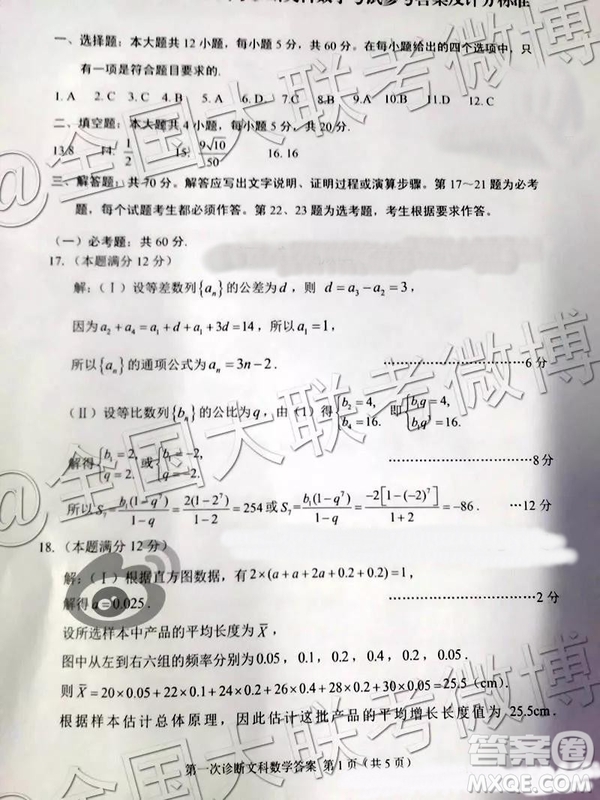 数学考试参考答案及评分标准
一、选择题：本大题共 12 小题，每小题 5 分，在每小题给出的四个选项中，只
有一项是符合题目要求的.
1. A 2. C 3. C 4. B 5. D 6. A 7. C 8. B 9. A 10. B 11. D 12. C
二、填空题：本大题共 4 小题，每小题 5 分，共 20 分.
13. 8 14. 1/2 15. 9√10/50 16. 16
三、解答题：共 70 分. 解答应写出文字说明、证明过程或演算步骤. 第 17～21 题为必考
题，每个试题考生都必须作答. 第 22、23 题为选考题，考生根据要求作答.
（一）必考题：共 60 分.
17.（本题满分 12 分）
解:（Ⅰ）设等差数列{aₙ}的公差为d，则 d=a₃−a₂=3，
因为a₂+a₄=a₁+d+a₁+3d=14，所以a₁=1，
所以{aₙ}的通项公式为aₙ=3n−2. ……………………6 分
（Ⅱ）设等比数列{bₙ}的公比为q，由（1）得{b₂=4, b₄=16. 即{b₁q=4, b₁q³=16.
解得{b₁=2, q=2. 或{b₁=−2, q=−2. ……………………8 分
所以S₇=b₁(1−q⁷)/(1−q)=2(1−2⁷)/(1−2)=254或S₇=b₁(1−q⁷)/(1−q)=−2[1−(−2)⁷]/(1+2)=−86. …12 分
18.（本题满分 12 分）
解:（Ⅰ）根据直方图数据，有 2×(a+a+2a+0.2+0.2)=1，
解得a=0.025. ……………………2 分
设所选样本中产品的平均长度为X̄，
图中从左到右六组的频率分别为 0.05，0.1，0.2，0.4，0.2，0.05.
则X̄=20×0.05+22×0.1+24×0.2+26×0.4+28×0.2+30×0.05=25.5（cm）.
根据样本估计总体原理，因此估计这批产品的平均增长长度值为 25.5cm.
第一次诊断文科数学答案 第 1 页（共 5 页）
@全国大联考微博
@全国大联考微博
答案卷
MXQE.COM